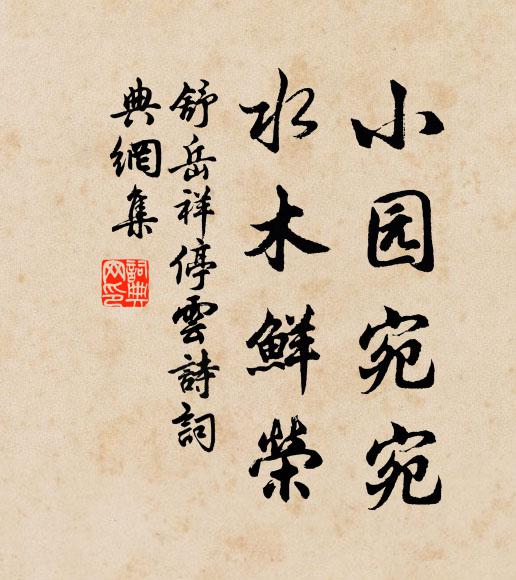 小园宛宛
水木鮮榮
舒岳祥停雲詩詞
典網集
詞典
网印